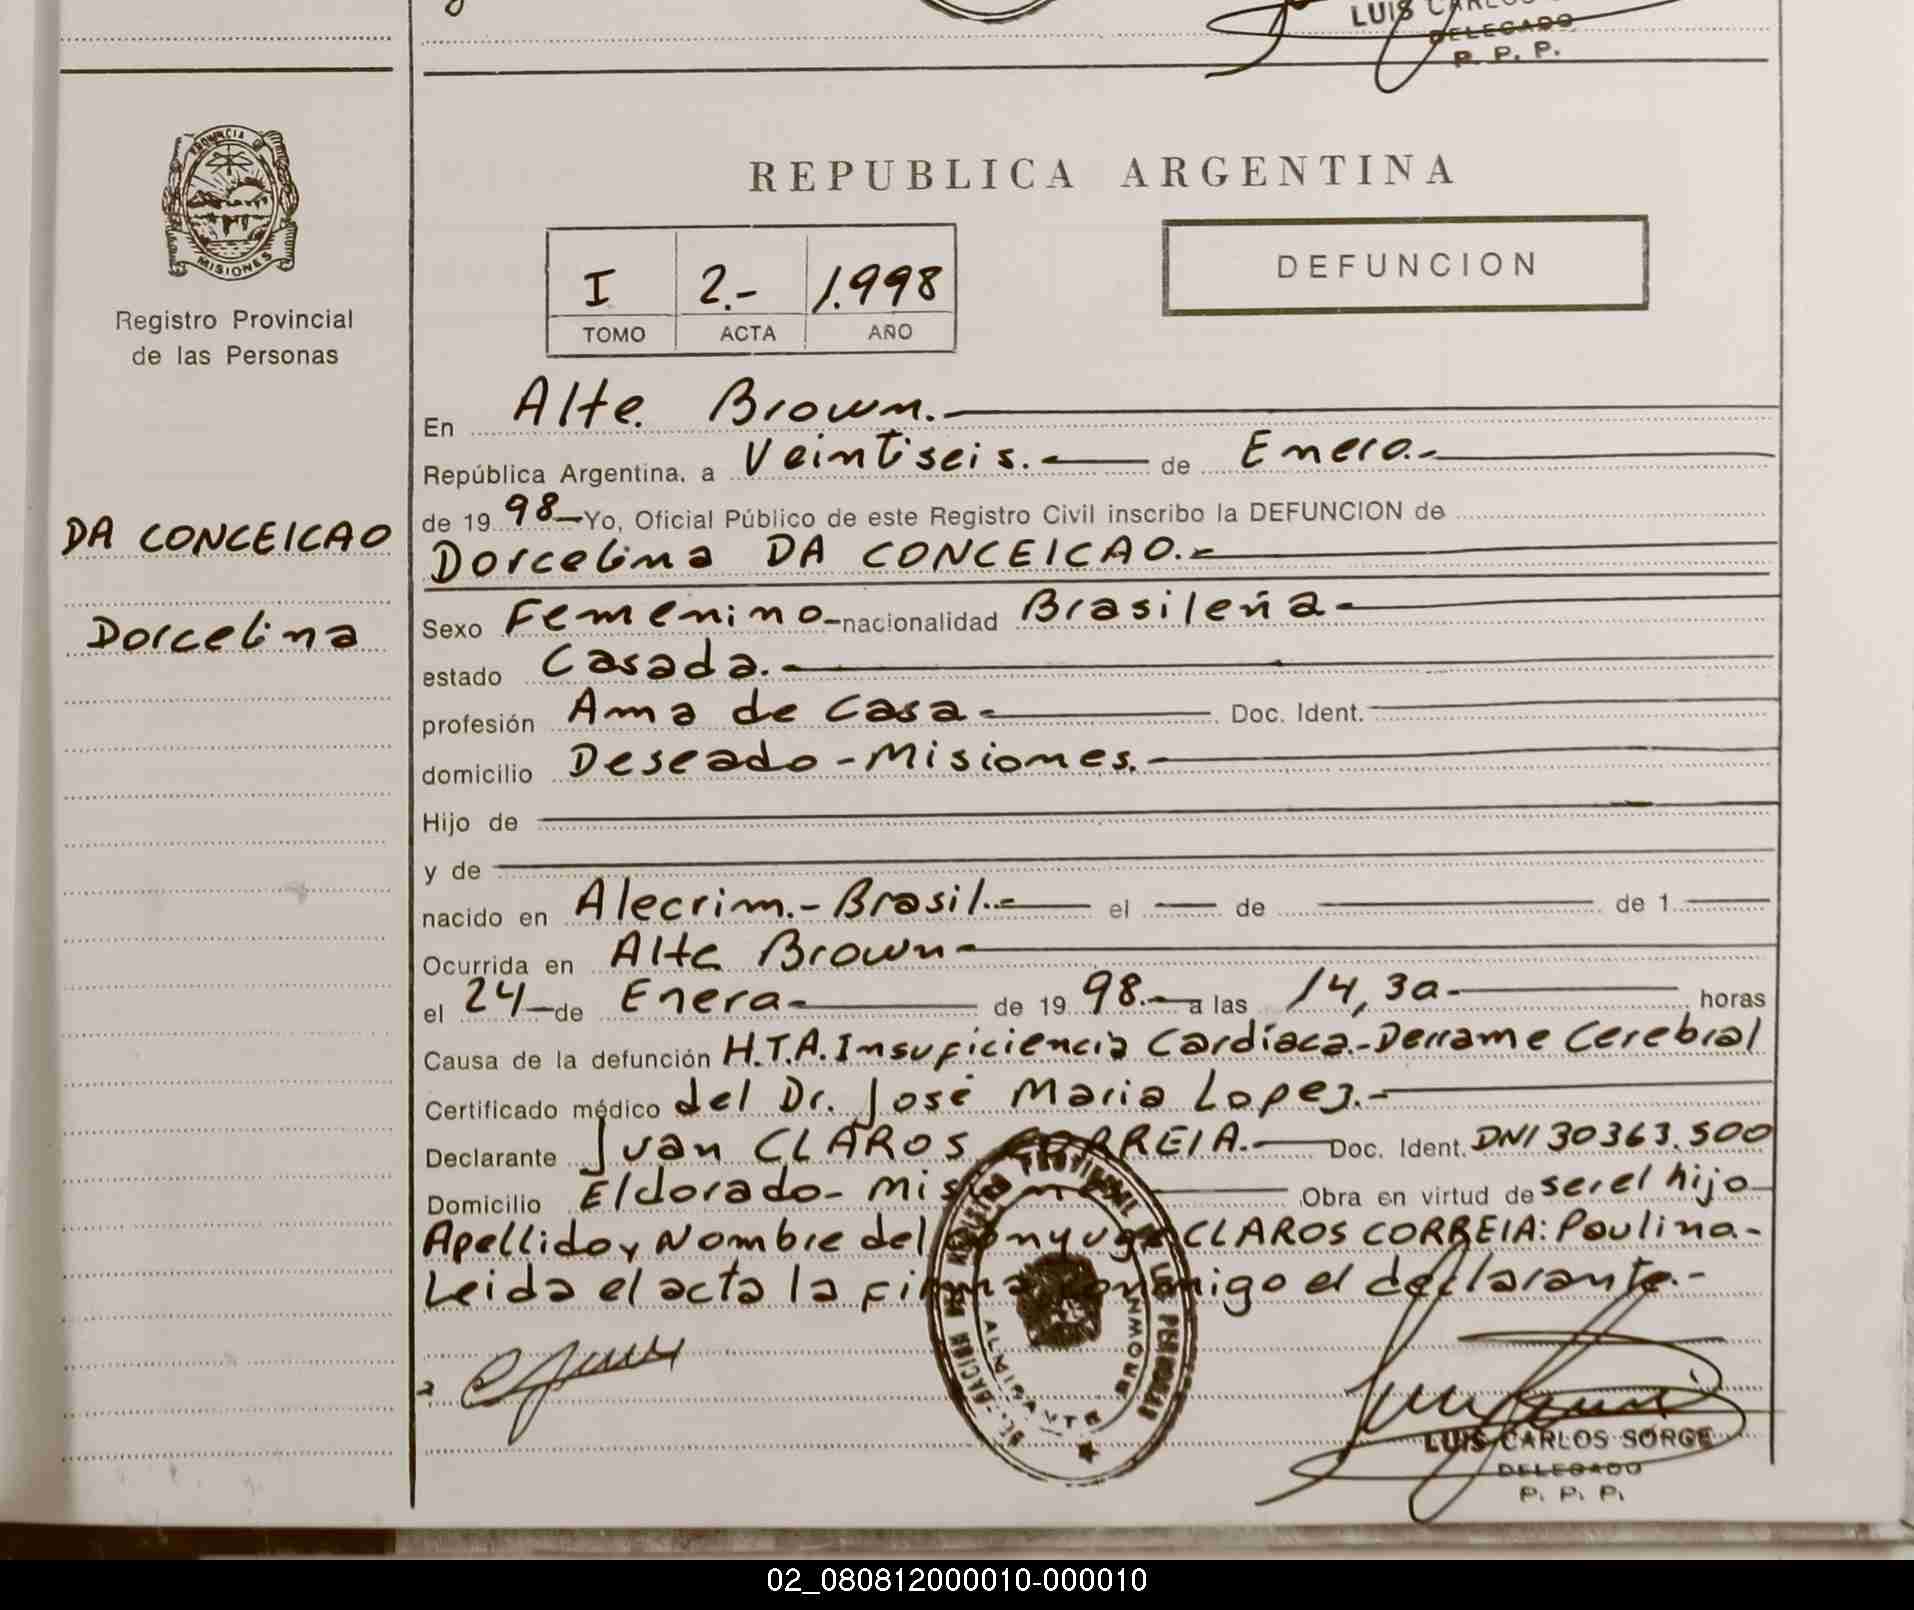 LUIS CARLOS
DELEGADO
P. P. P.
PROVINCIA DE
MISIONES
Registro Provincial
de las Personas
DA CONCEICAO
Dorcelina
REPUBLICA ARGENTINA
I 2.- 1.998
TOMO ACTA AÑO
DEFUNCION
En Alte. Brown.
República Argentina, a Veintiseis. de Enero.-
de 19 98 Yo, Oficial Público de este Registro Civil inscribo la DEFUNCION de
Dorcelina DA CONCEICAO.-
Sexo Femenino nacionalidad Brasileña
estado Casada.
profesión Ama de Casa Doc. Ident.
domicilio Deseado - Misiones.
Hijo de
y de
nacido en Alecrim.- Brasil. el de de 1
Ocurrida en Alte Brown
el 24 de Enero de 19 98.- a las 14,30 horas
Causa de la defunción H.T.A. Insuficiencia Cardíaca.- Derrame Cerebral
Certificado médico del Dr. José Maria Lopez.-
Declarante Juan CLAROS CORREIA. Doc. Ident. DNI 30363.500
Domicilio Eldorado - Misiones Obra en virtud de ser el hijo
Apellido y Nombre del Conyuge CLAROS CORREIA: Paulino.-
Leida el acta la firma conmigo el declarante.-
ALMIRANTE BROWN
LUIS CARLOS SORGE
DELEGADO
P. P. P.
02_080812000010-000010